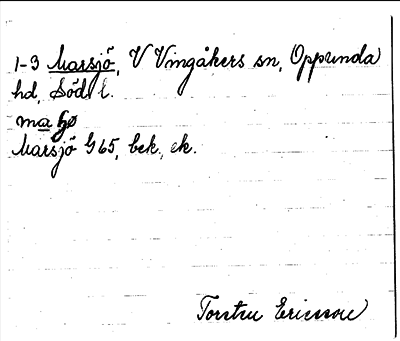 1-3 Marsjö, V Vingåkers sn, Oppunda
hd, Södl l.
Marsjö G65, bek, ek.
Torsten Ericsson